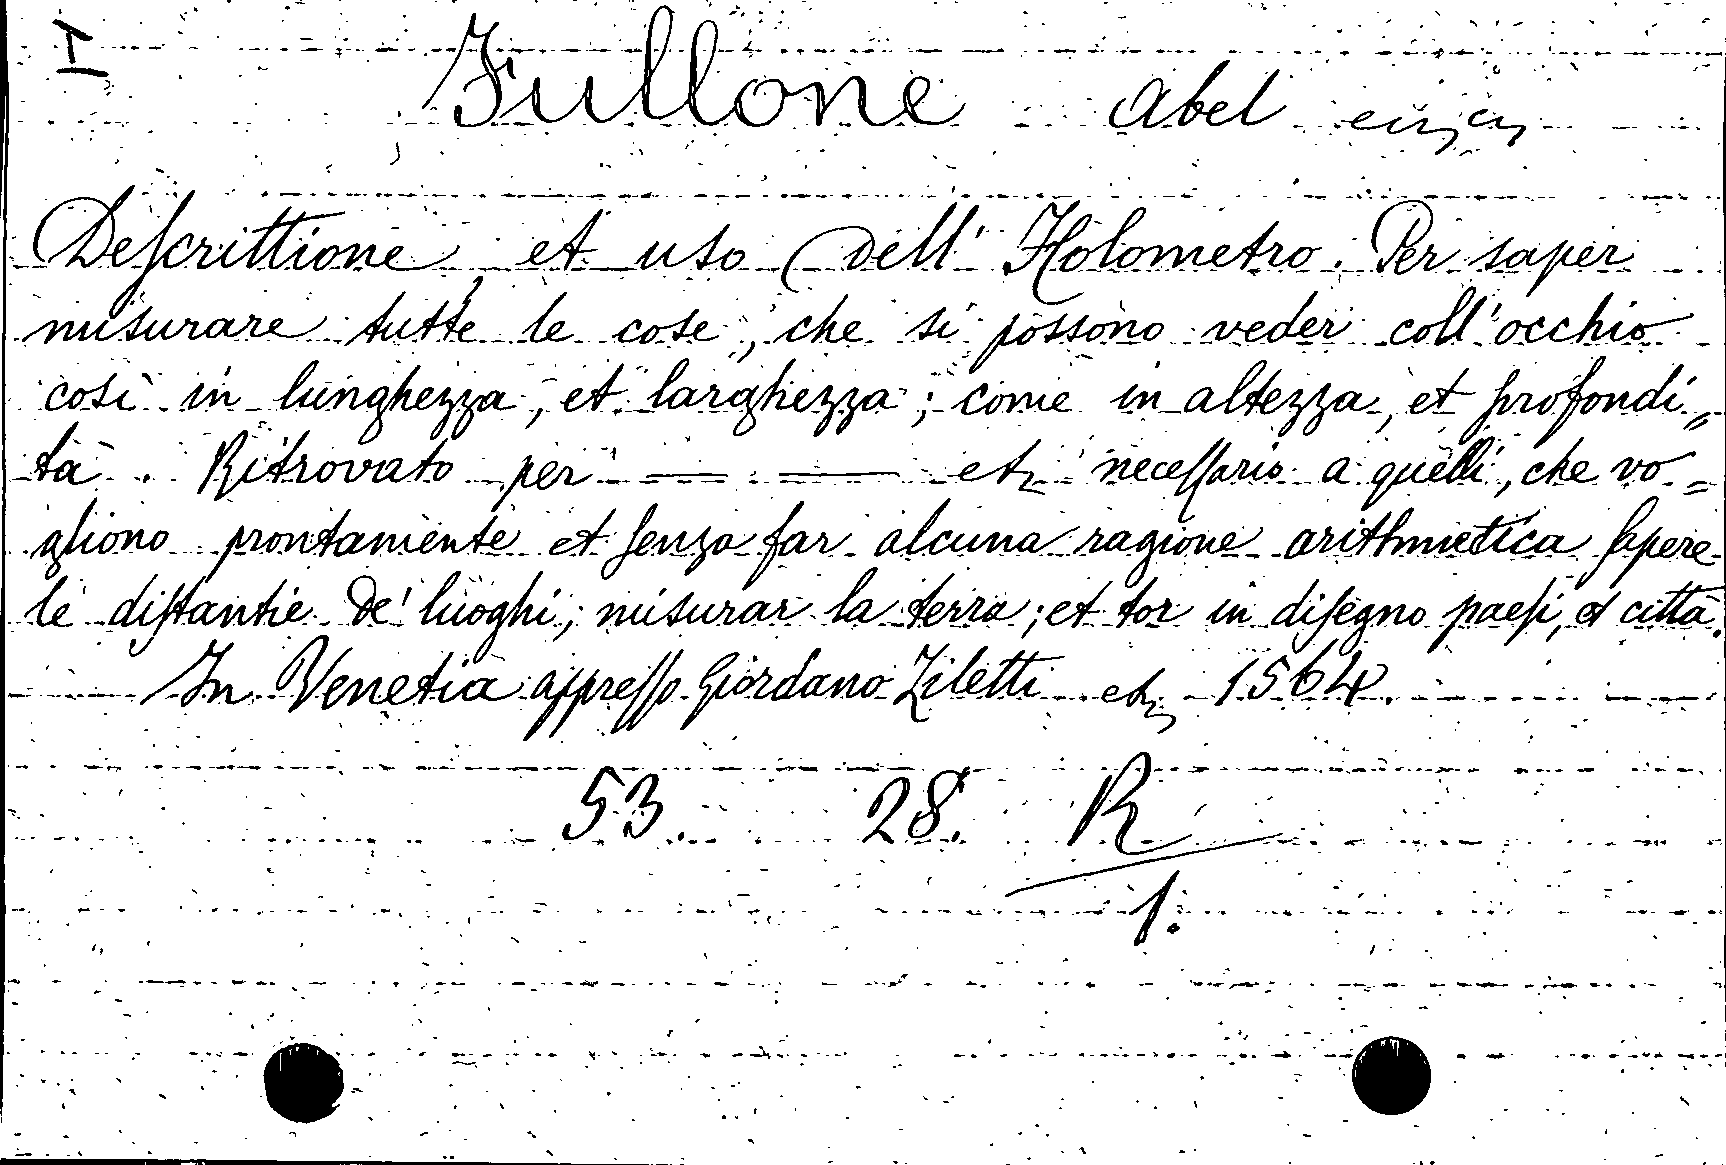 I
Fullone Abel
Deſcrittione, et uso dell' Holometro. Per saper
misurare tutte le cose, che si possono veder coll'occhio
così in lunghezza, et larghezza; come in altezza, et profondi„
tà. Ritrovato per == == etc neceſſario a quelli, che vo=
gliono prontamente et ſenza far alcuna ragione arithmetica ſapere
le diſtantie de' luoghi; misurar la terra; et tor in diſegno paeſi, et città.
In Venetia appreſſo Giordano Ziletti etc 1564.
53. 28. R
1.